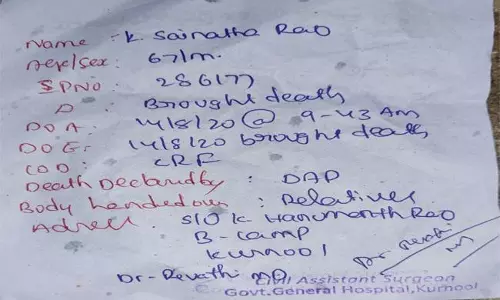 Name : K. Sainatha Rao
Age/Sex : 67/M.
SPNO : 286177
D : Brought death
D O A : 14/8/20 @ 9-43 AM
D O E : 14/8/20 brought death
COD : CRF
Death Declared by : DAP
Body handed over : Relatives
Adress : S/O K Hanumanth Rao
B-camp
Kurnool
Dr. Revathi
Dr-Revathi MD
Civil Assistant Surgeon
Govt.General Hospital,Kurnool